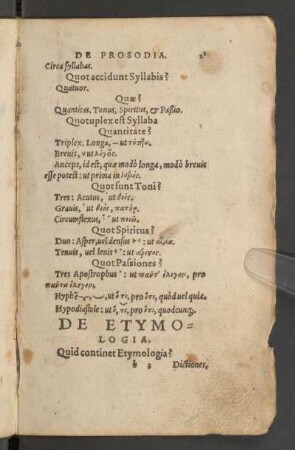 DE PROSODIA.
Circa syllabas.
Quot accidunt Syllabis?
Quatuor.
Quæ?
Quantitas, Tonus, Spiritus, & Passio.
Quotuplex est Syllaba
Quantitate?
Triplex. Longa, – ut
Brevis, ut λόγος.
Anceps, id est, quæ modò longa, modò brevis
esse potest: ut prima in
Quot sunt Toni?
Tres: Acutus, ut θεός.
Gravis, ut θεὸς, πατὴρ.
Circumflexus, ut ποιῶ.
Quot Spiritus?
Duo: Asper, uel densus : ut
Tenuis, uel lenis : ut
Quot Passiones?
Tres Apostrophus ’: ut παντ’ ἔλεγον, pro
παντα ἔλεγον.
Hyphẽ , ut pro ὅτι, quòd uel quia.
Hypodiastole: ut ὅ, τι, pro ὅτι, quodcunq;.
DE ETYMO-
LOGIA.
Quid continet Etymologia?
b 3 Dictiones,